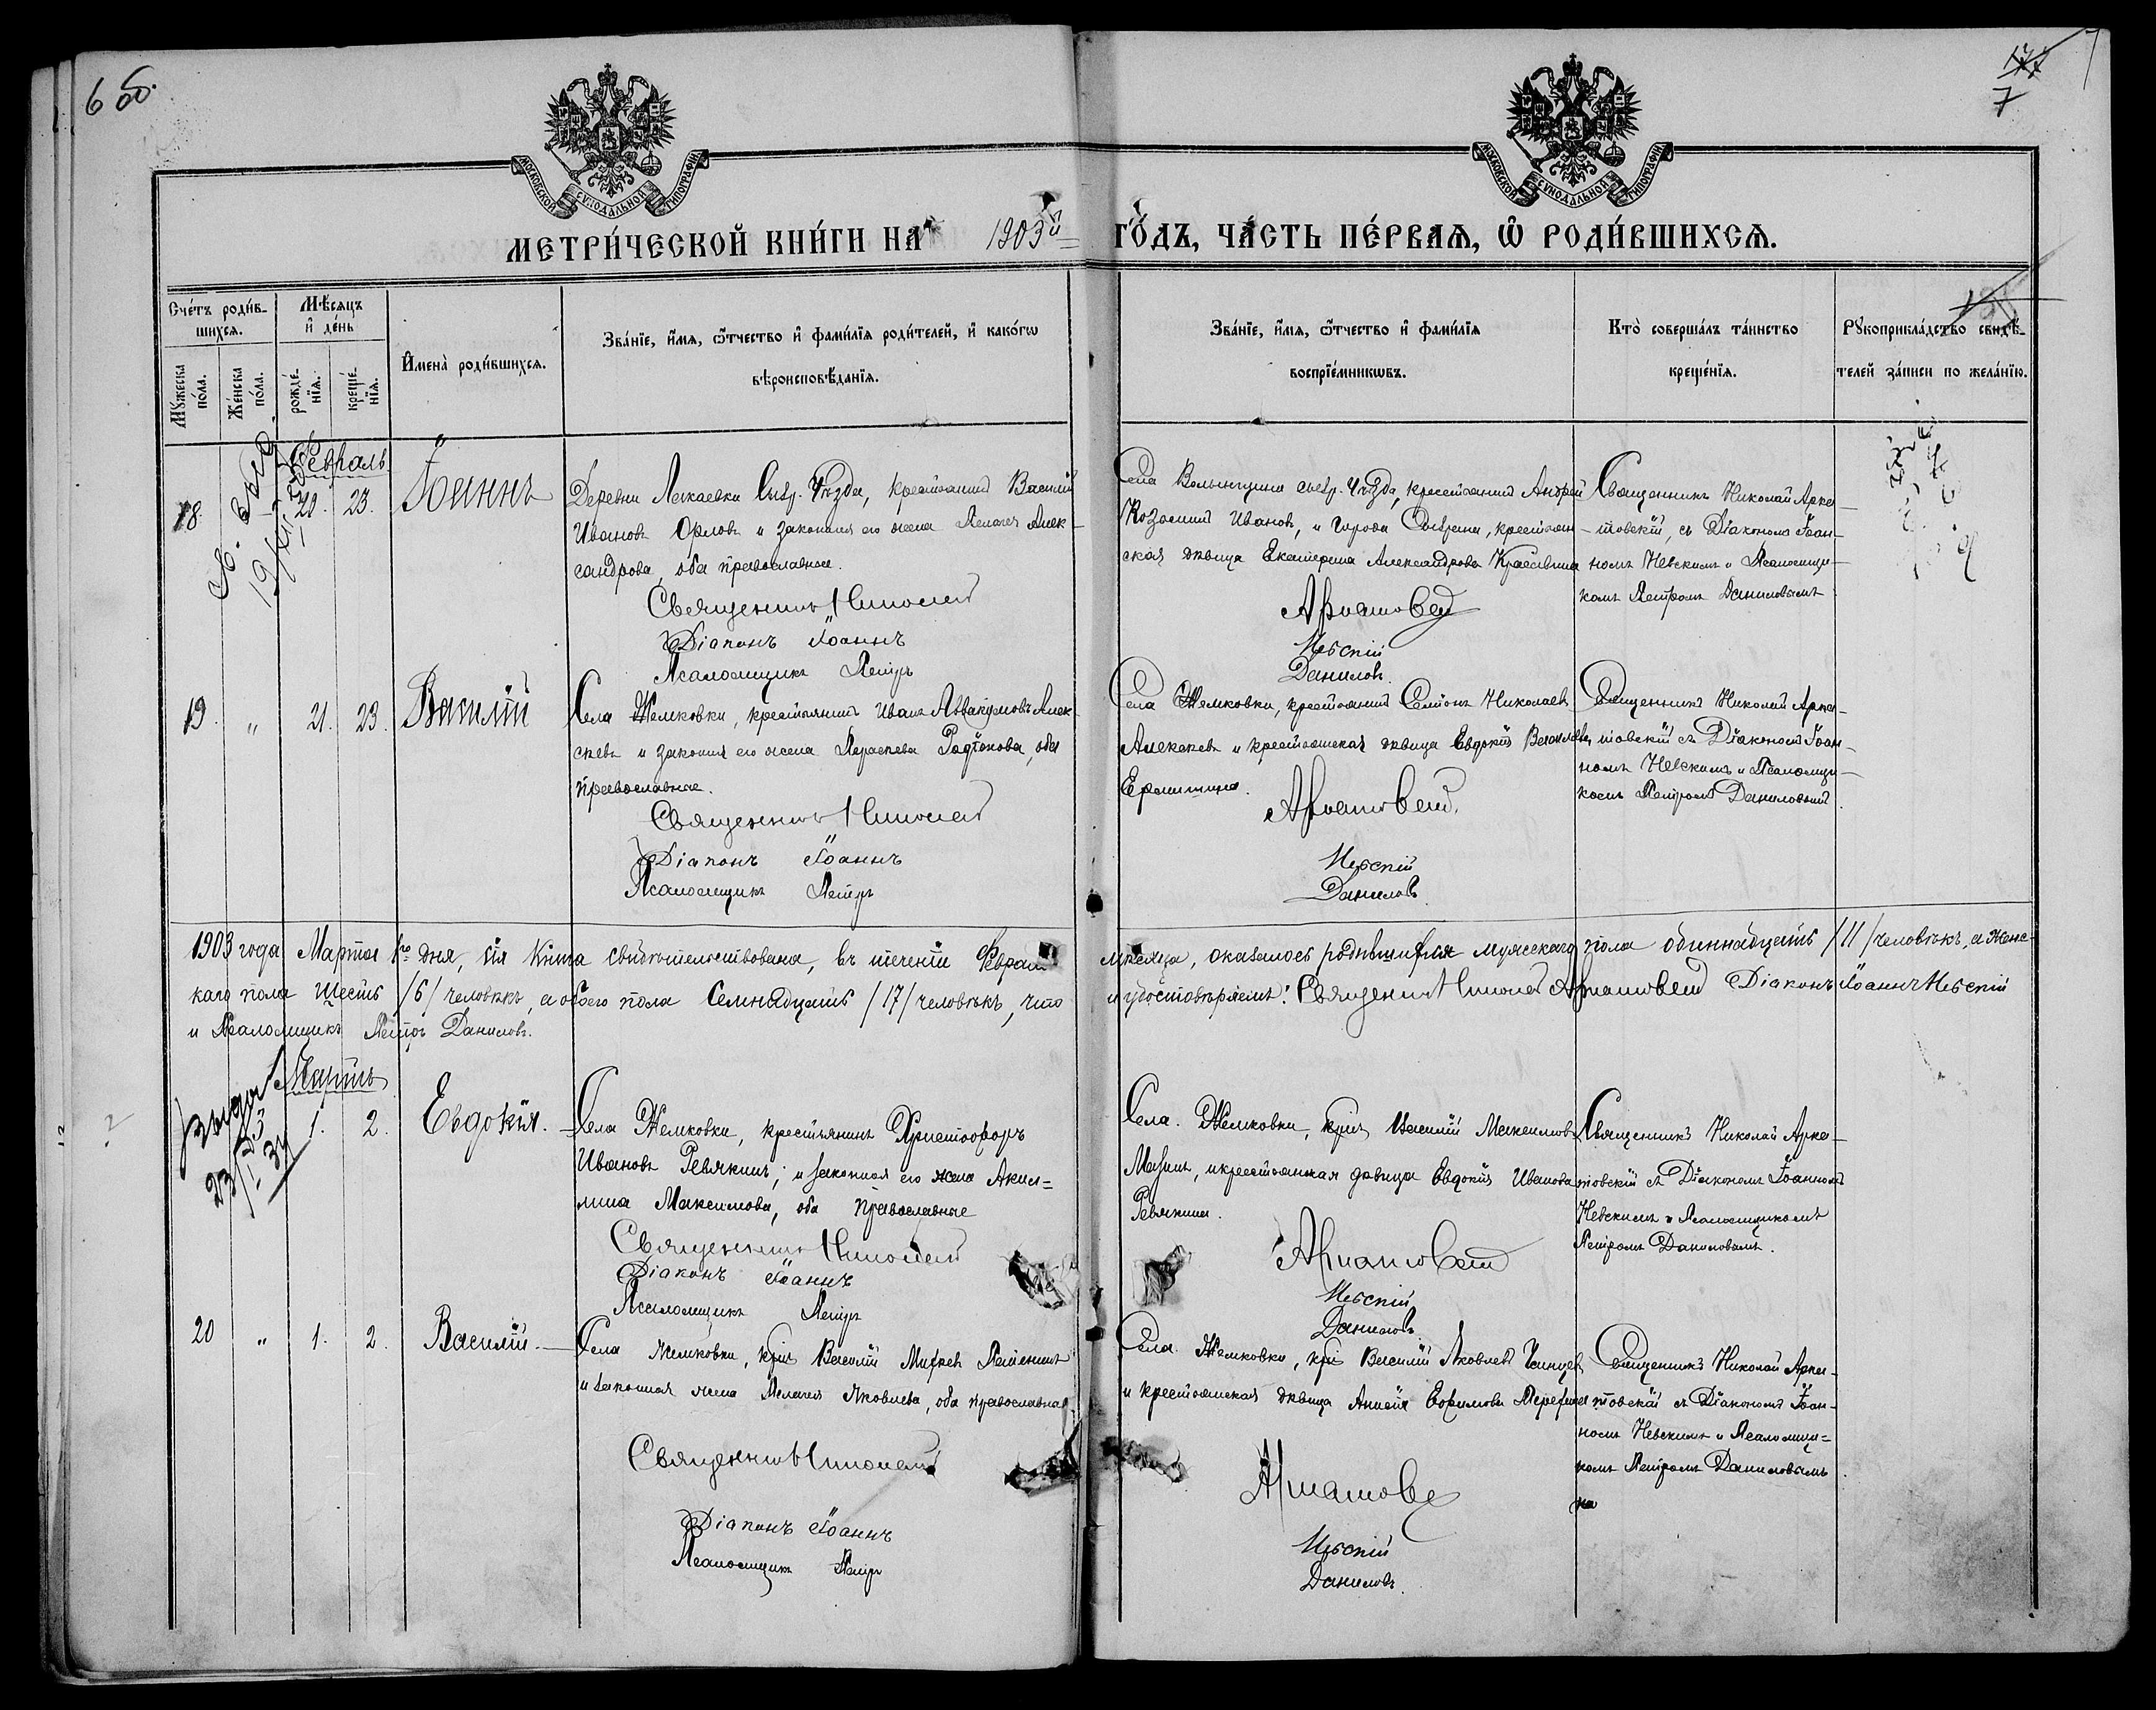 6 об.
7
МОСКОВСКОЙ СѴНОДАЛЬНОЙ ТИПОГРАФІИ
МОСКОВСКОЙ СѴНОДАЛЬНОЙ ТИПОГРАФІИ
МЕТРИ́ЧЕСКОЙ КНИ́ГИ НА 1903й ГО́ДЪ, ЧА́СТЬ ПЕ́РВАѦ, Ѽ РОДИ́ВШИХСѦ.
Сче́тъ роди́в-
шихсѧ.
Мѣ́сѧцъ
и҆ де́нь
Мꙋ́жеска по́ла.
Же́нска по́ла.
рожде́-нїѧ.
креще́-нїѧ.
И҆мена̀ роди́вшихсѧ.
Зва́нїе, и҆́мѧ, ѻ҆́тчество и҆ фами́лїѧ роди́телей, и҆ како́гѡ
вѣроисповѣ́данїѧ.
Зва́нїе, и҆́мѧ, ѻ҆́тчество и҆ фами́лїѧ
воспрїе́мникѡвъ.
Кто̀ соверша́лъ та́инство
креще́нїѧ.
Рꙋкоприкла́дство свидѣ́-
телей за́писи по жела́нїю.
Февраль
18. 20. 23. Іоаннъ
Деревни Уѣзда, крестьянинъ Василій
Ивановъ Орловъ и законная его жена Пелагея Алек-
сандрова, оба православные.
Священникъ Николай
Діаконъ Іоаннъ
Псаломщикъ Петръ
Села Уѣзда, крестьянинъ Андрей
Козминъ Ивановъ, и города крестьян-
ская дѣвица Екатерина Александрова
Невскій
Данилов.
Священникъ Николай Арха-
товскій, съ Діакономъ Іоан-
номъ Невскимъ и Псаломщи-
комъ Петромъ Даниловымъ
19. " 21. 23. Василій
Села Жемковки, крестьянинъ Иванъ Аввакумовъ Алек-
сѣевъ и законная его жена Параскева Родіонова, оба
православные.
Священникъ Николай
Діаконъ Іоаннъ
Псаломщикъ Петръ
Села Жемковки, крестьянинъ Семіонъ Николаевъ
Алексѣевъ и крестьянская дѣвица Евдокія Васильева
Невскій
Данилов
Священникъ Николай Арха-
товскій съ Діакономъ Іоан-
номъ Невскимъ и Псаломщи-
комъ Петромъ Даниловымъ.
1903 года Марта 1го дня, сія Книга свидѣтельствована, въ теченіи Февраля мѣсяца, оказалось родившихся мужескаго пола одиннадцать /11/ человѣкъ, а женс-
каго пола Шесть /6/ человѣкъ, а обоего пола Семнадцать /17/ человѣкъ, что и удостовѣряемъ: Священникъ Николай Діаконъ Іоаннъ Невскій
и Псаломщикъ Петръ Даниловъ.
Мартъ
1. 2. Евдокія.
Села Жемковки, крестьянинъ Христофоръ
Ивановъ Ревякинъ, и законная его жена Акил-
лина Максимова, оба православные
Священникъ Николай
Діаконъ Іоаннъ
Псаломщикъ Петръ
Села Жемковки, крнъ Василій Максимовъ
Мазинъ, и крестьянская дѣвица Евдокія Иванова
Ревякина.
Невскій
Данилов
Священникъ Николай Арха-
товскій съ Діакономъ Іоанномъ
Невскимъ и Псаломщикомъ
Петромъ Даниловымъ.
20 " 1. 2. Василій.
Села Жемковки, крнъ Василій
и законная жена Пелагея Яковлева, оба православные
Священникъ Николай
Діаконъ Іоаннъ
Псаломщикъ Петръ
Села Жемковки, крнъ Василій Яковлевъ
и крестьянская дѣвица Анисія Ефимова
Невскій
Даниловъ.
Священникъ Николай Арха-
товскій съ Діакономъ Іоан-
номъ Невскимъ и Псаломщи=
комъ Петромъ Даниловымъ